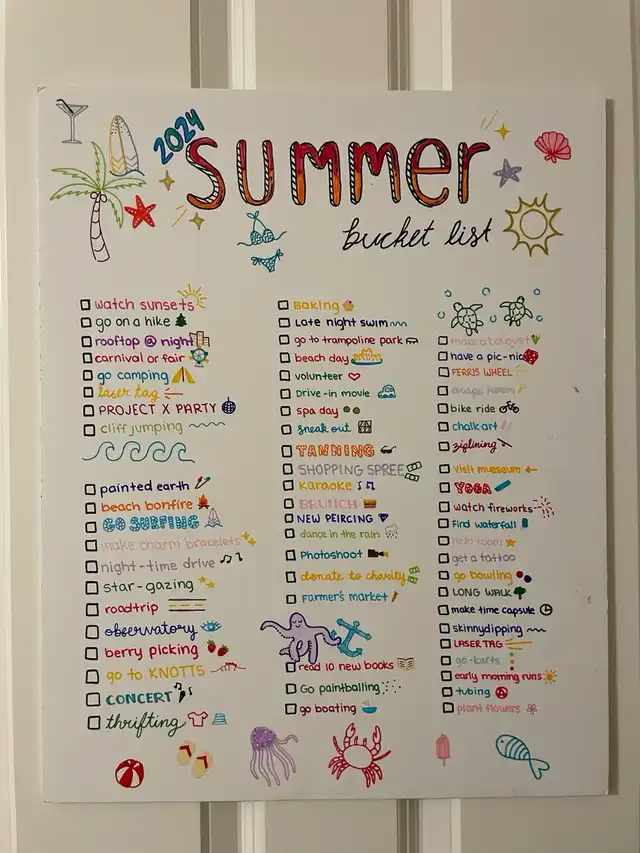 2024
SUMMER
bucket list
watch sunsets
go on a hike
rooftop @ night
carnival or fair
go camping
laser tag
PROJECT X PARTY
cliff jumping
painted earth
beach bonfire
GO SURFING
make charm bracelets
night-time drive
star-gazing
roadtrip
observatory
berry picking
go to KNOTTS
CONCERT
thrifting
BAKING
Late night swim
go to trampoline park
beach day
volunteer
Drive-in movie
spa day
sneak out
TANNING
SHOPPING SPREE
karaoke
BRUNCH
NEW PEIRCING
dance in the rain
Photoshoot
donate to charity
Farmer's market
read 10 new books
Go paintballing
go boating
make a bouquet
have a pic-nic
FERRIS WHEEL
escape room
bike ride
chalk art
ziplining
visit museum
YOGA
watch fireworks
Find waterfall
redo room
get a tattoo
go bowling
LONG WALK
make time capsule
skinnydipping
LASER TAG
go-karts
early morning runs
tubing
plant flowers